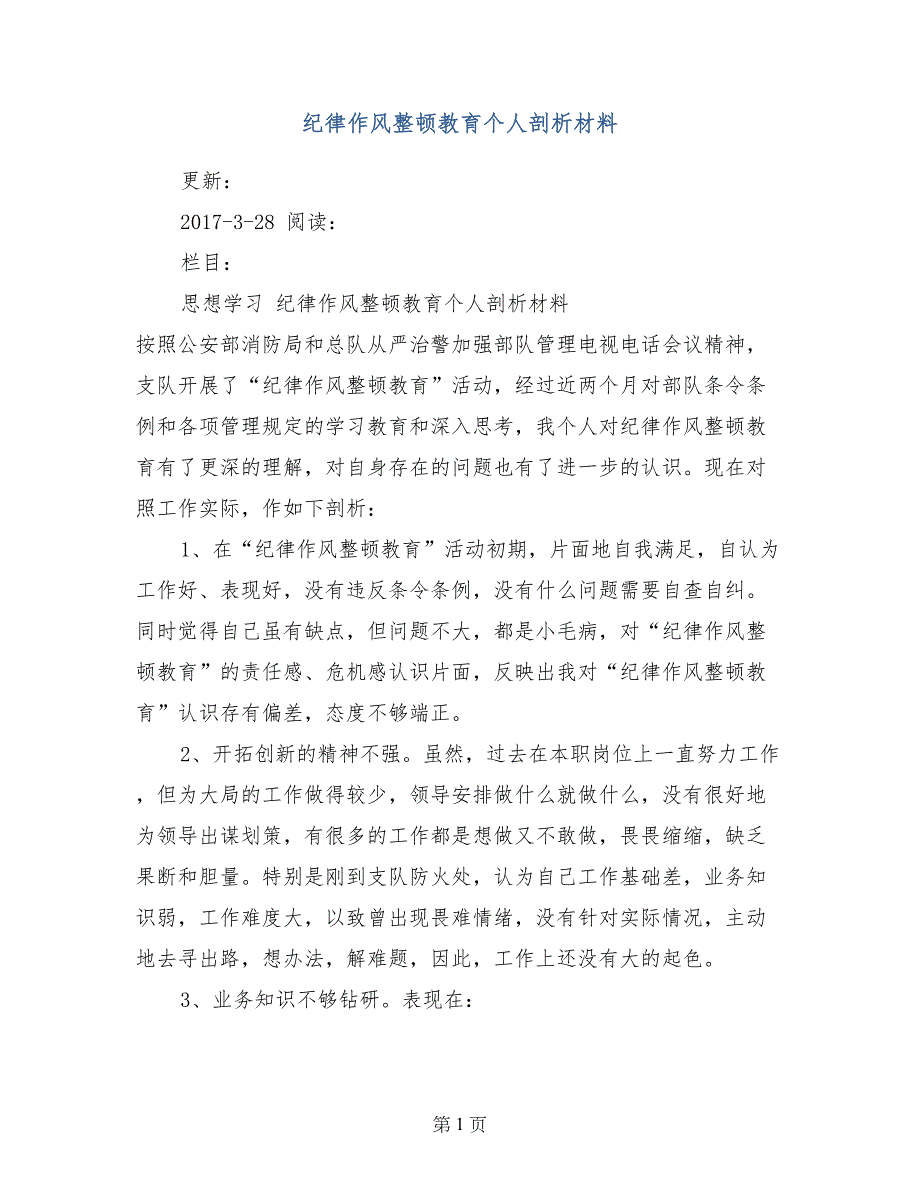 纪律作风整顿教育个人剖析材料
更新：
2017-3-28 阅读：
栏目：
思想学习 纪律作风整顿教育个人剖析材料
按照公安部消防局和总队从严治警加强部队管理电视电话会议精神，
支队开展了“纪律作风整顿教育”活动，经过近两个月对部队条令条
例和各项管理规定的学习教育和深入思考，我个人对纪律作风整顿教
育有了更深的理解，对自身存在的问题也有了进一步的认识。现在对
照工作实际，作如下剖析：
1、在“纪律作风整顿教育”活动初期，片面地自我满足，自认为
工作好、表现好，没有违反条令条例，没有什么问题需要自查自纠。
同时觉得自己虽有缺点，但问题不大，都是小毛病，对“纪律作风整
顿教育”的责任感、危机感认识片面，反映出我对“纪律作风整顿教
育”认识存有偏差，态度不够端正。
2、开拓创新的精神不强。虽然，过去在本职岗位上一直努力工作
，但为大局的工作做得较少，领导安排做什么就做什么，没有很好地
为领导出谋划策，有很多的工作都是想做又不敢做，畏畏缩缩，缺乏
果断和胆量。特别是刚到支队防火处，认为自己工作基础差，业务知
识弱，工作难度大，以致曾出现畏难情绪，没有针对实际情况，主动
地去寻出路，想办法，解难题，因此，工作上还没有大的起色。
3、业务知识不够钻研。表现在：
第 1 页